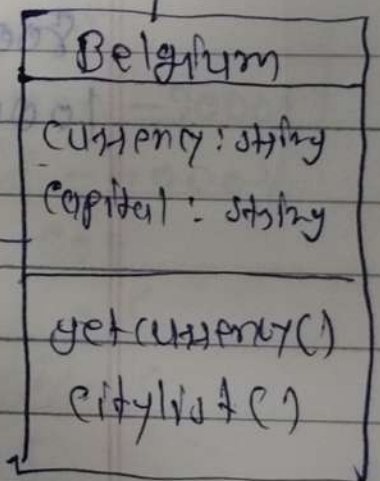 Belgium
currency : string
capital : string
getcurrency()
citylist()